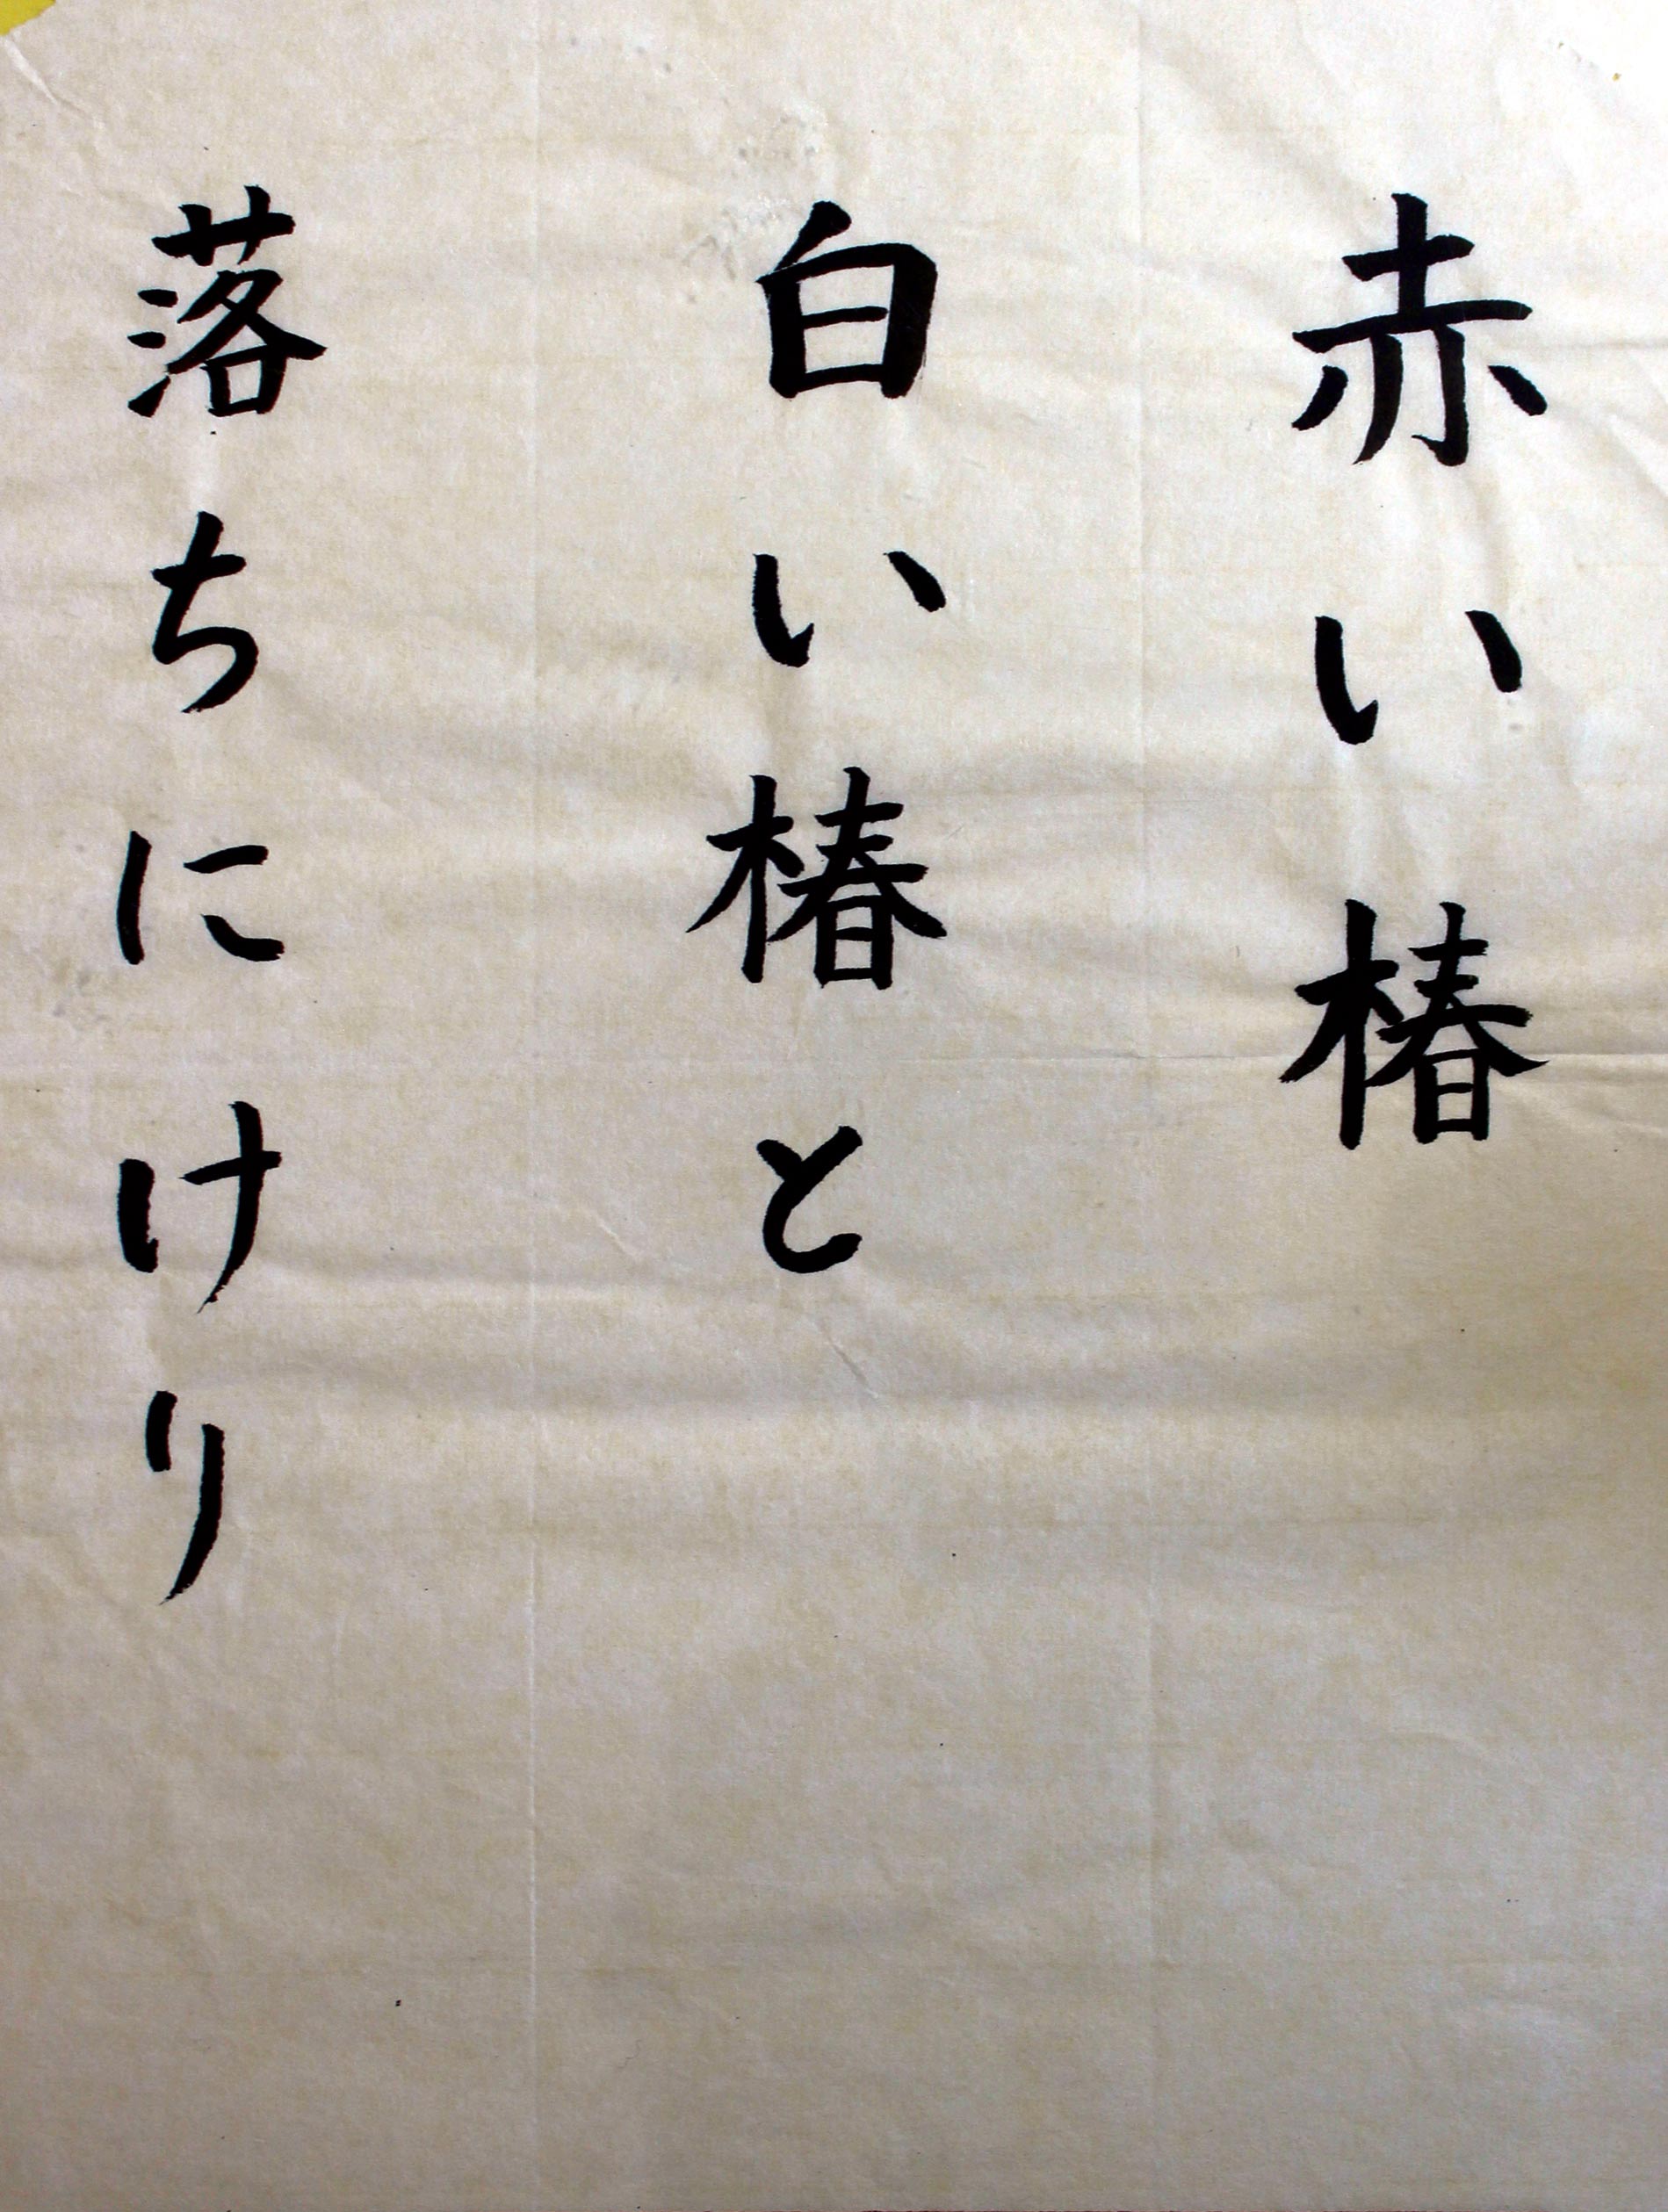 赤い椿
白い椿と
落ちにけり